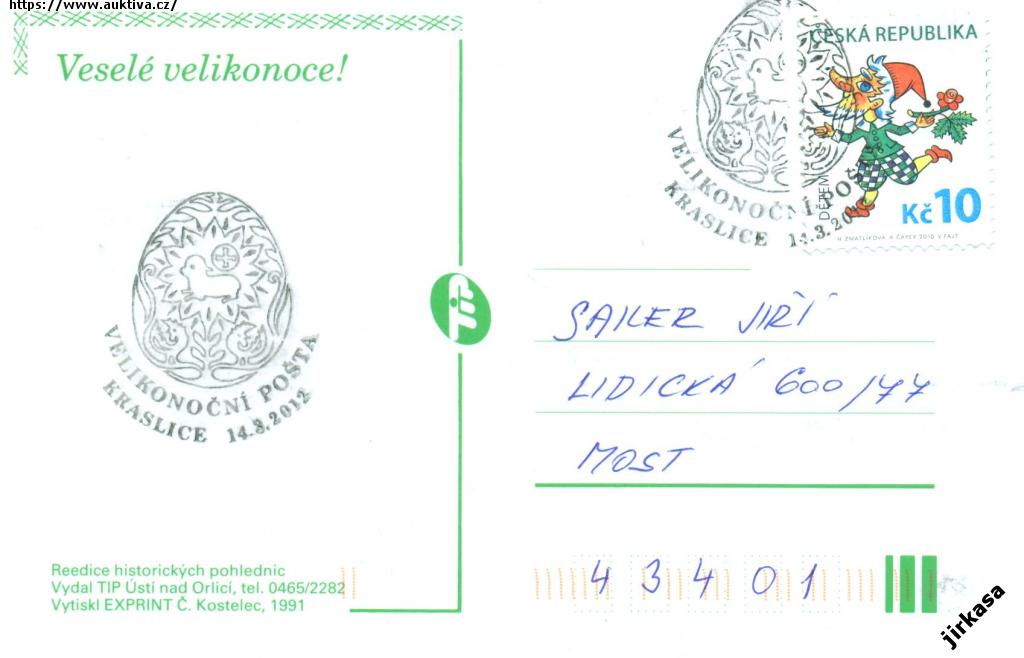 https://www.auktiva.cz/
Veselé velikonoce!
VELIKONOČNÍ POŠTA
KRASLICE 14.3.2012
Reedice historických pohlednic
Vydal TIP Ústí nad Orlicí, tel. 0465/2282
Vytiskl EXPRINT Č. Kostelec, 1991
TIP
ČESKÁ REPUBLIKA
DĚTEM
Kč 10
H. ZMATLÍKOVÁ K. ČAPEK 2010 V. FAJT
VELIKONOČNÍ POŠ
KRASLICE 14.3.20
SAILER JIŘÍ
LIDICKÁ 600/77
MOST
43401
jirkasa